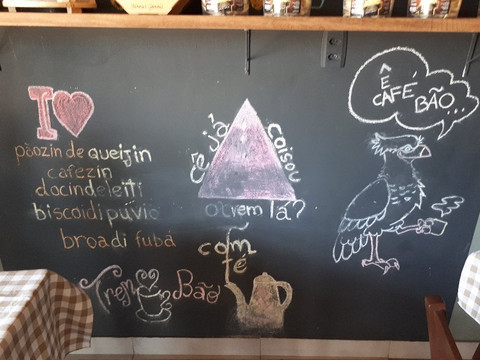 I
pãozin de queijin
cafezin
docindeleiti
biscoidipúvio
broadi fubá
cê já
coisou
o trem lá?
com
fé
Trem Bão
Ê
CAFÉ
BÃO...